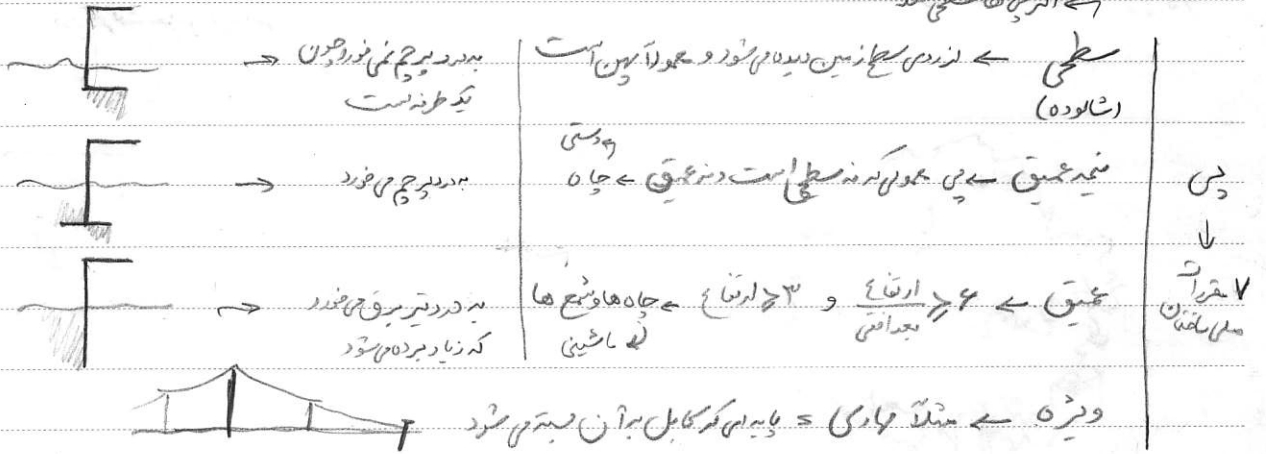 ← اکثر پی ها سطحی اند
پی
↓
۷ مقررات
ملی ساختمان
سطحی ← از روی سطح زمین دیده می‌شود و معمولاً پهن است
(شالوده)
→ به درد پرچم نمی خورد چون
یک طرفه است
نیمه عمیق ← پی عمومی که نه سطحی است و نه عمیق ← چاه
دستی
→ به درد پرچم می خورد
عمیق ← ۶ ≤ ارتفاع / بعد افقی و ۳ ≤ ارتفاع ← چاه ها و شمع ها
ماشینی
→ به درد تیر برق می خورد
که زیاد برده می شود
ویژه ← مثلاً مهاری = پایه ای که کابل به آن بسته می شود